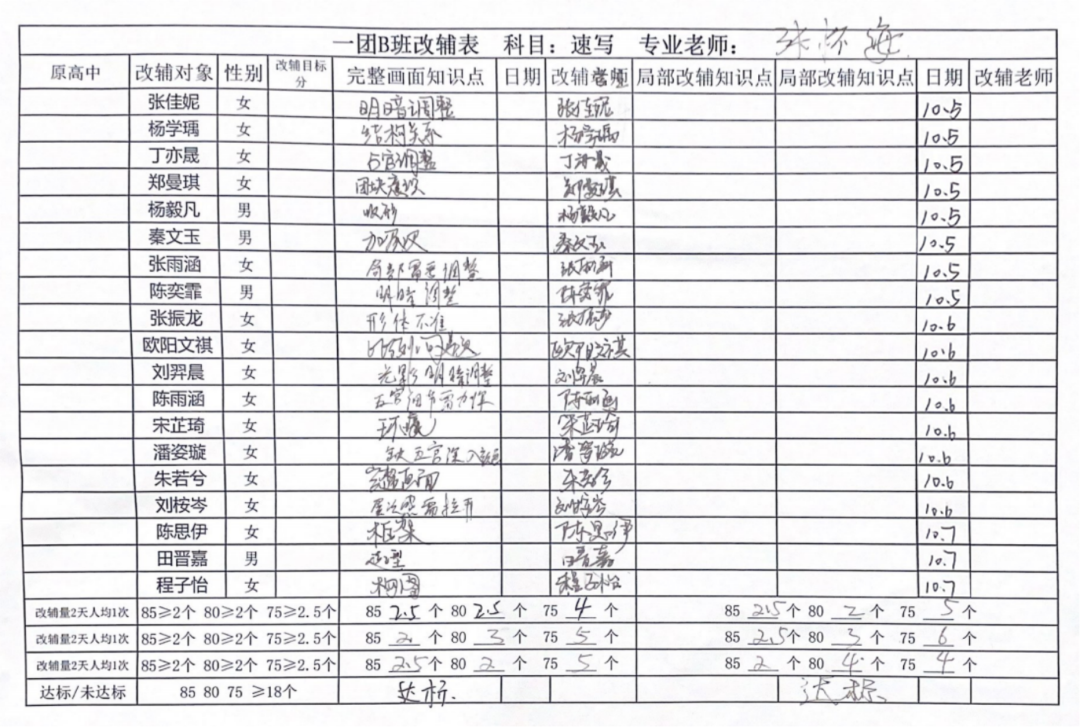 一团B班改辅表 科目：速写 专业老师： 张怀海
原高中 改辅对象 性别 改辅目标分 完整画面知识点 日期 改辅 局部改辅知识点 局部改辅知识点 日期 改辅老师
张佳妮 女 明暗调整 张佳妮 10.5
杨学瑀 女 结构关系 杨学瑀 10.5
丁亦晟 女 五官调整 丁亦晟 10.5
郑曼琪 女 团块意识 郑曼琪 10.5
杨毅凡 男 吸形 杨毅凡 10.5
秦文玉 男 秦文玉 10.5
张雨涵 女 局部需要调整 张雨涵 10.5
陈奕霏 男 明暗调整 陈奕霏 10.5
张振龙 女 形体不准 张振龙 10.6
欧阳文祺 女 欧阳文祺 10.6
刘羿晨 女 光影明暗调整 刘羿晨 10.6
陈雨涵 女 陈雨涵 10.6
宋芷琦 女 宋芷琦 10.6
潘姿璇 女 缺五官深入刻画 潘姿璇 10.6
朱若兮 女 完整画面 朱若兮 10.6
刘桉岑 女 层次需要拉开 刘桉岑 10.6
陈思伊 女 框架 陈思伊 10.7
田晋嘉 男 造型 田晋嘉 10.7
程子怡 女 构图 程子怡 10.7
改辅量2天人均1次 85≥2个 80≥2个 75≥2.5个 85 2.5 个 80 2.5 个 75 4 个 85 2.5 个 80 2 个 75 5 个
改辅量2天人均1次 85≥2个 80≥2个 75≥2.5个 85 2. 个 80 3 个 75 5 个 85 2.5 个 80 3 个 75 6 个
改辅量2天人均1次 85≥2个 80≥2个 75≥2.5个 85 2.5 个 80 2 个 75 5 个 85 2 个 80 4 个 75 4 个
达标/未达标 85 80 75 ≥18个 达标. 达标.